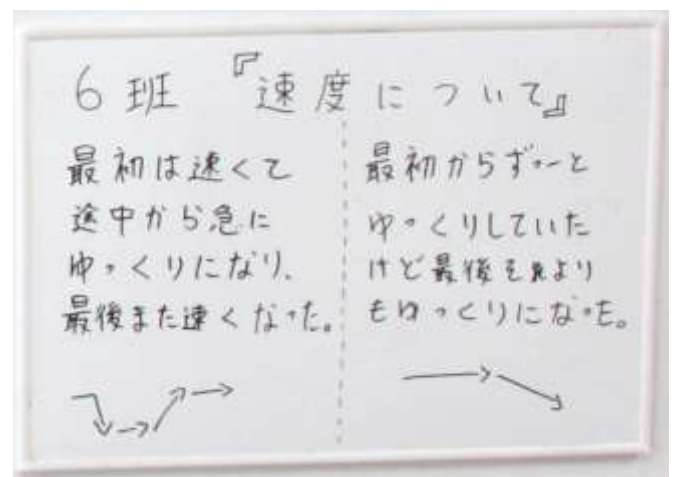 6班 『速度について』
最初は速くて
途中から急に
ゆっくりになり、
最後また速くなった。
最初からずーっと
ゆっくりしていた
けど最後は
もゆっくりになった。